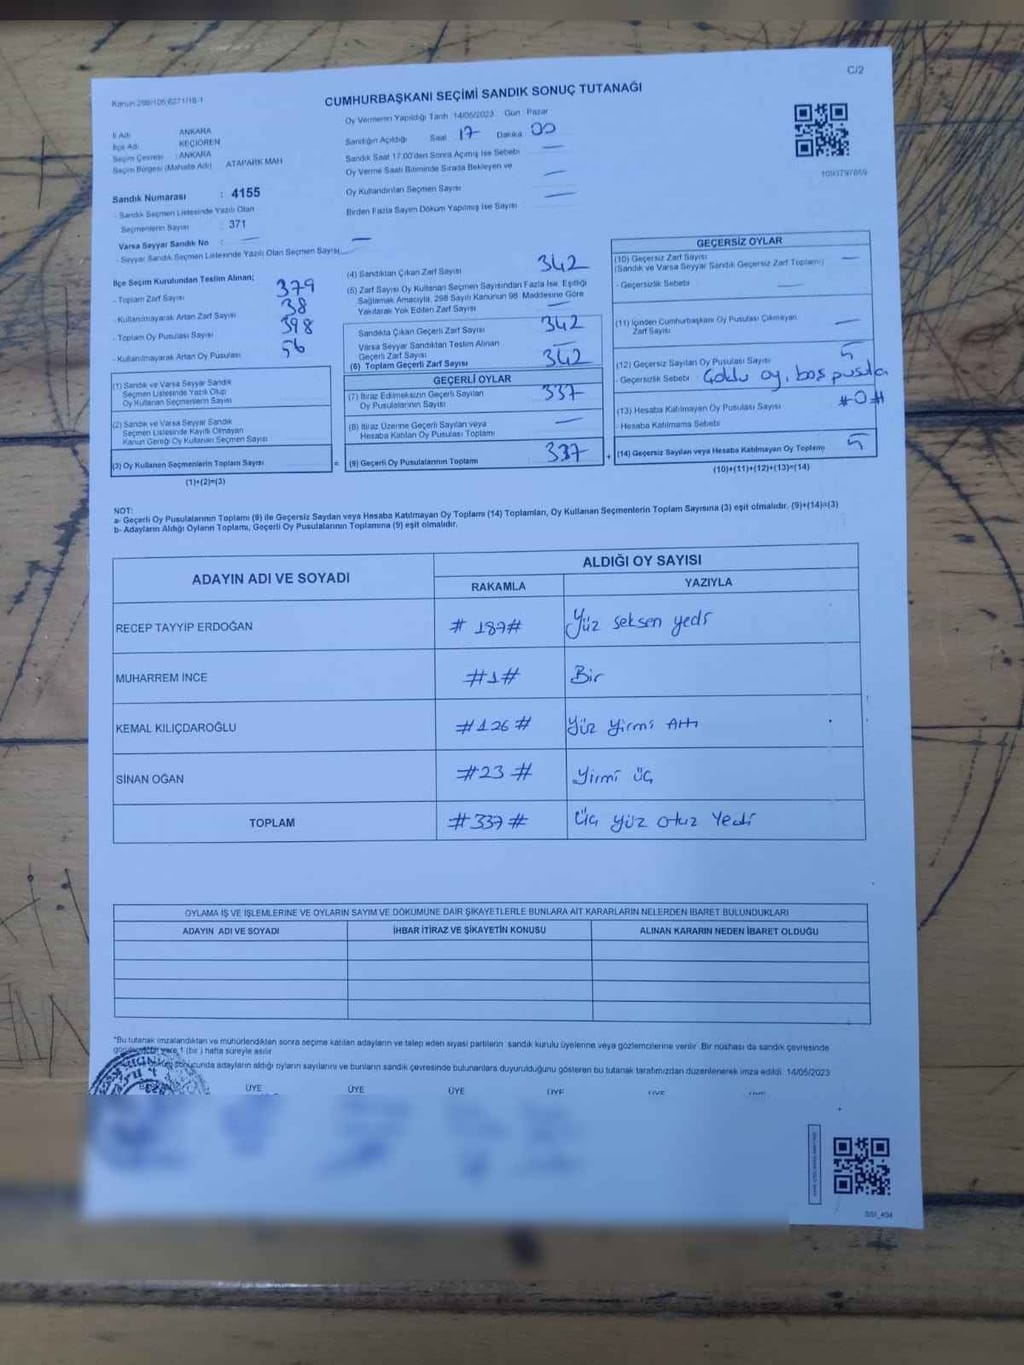 C/2
Kanun 298/105;6271/18-1
CUMHURBAŞKANI SEÇİMİ SANDIK SONUÇ TUTANAĞI
İl Adı : ANKARA
İlçe Adı : KEÇİÖREN
Seçim Çevresi : ANKARA
Seçim Bölgesi (Mahalle Adı) : ATAPARK MAH
Sandık Numarası : 4155
- Sandık Seçmen Listesinde Yazılı Olan
Seçmenlerin Sayısı : 371
Varsa Seyyar Sandık No : —
- Seyyar Sandık Seçmen Listesinde Yazılı Olan Seçmen Sayısı : —
Oy Vermenin Yapıldığı Tarih 14/05/2023 Gün Pazar
Sandığın Açıldığı Saat 17 Dakika 00
Sandık Saat 17:00'den Sonra Açılmış İse Sebebi —
Oy Verme Saati Bitiminde Sırada Bekleyen ve
Oy Kullandırılan Seçmen Sayısı —
Birden Fazla Sayım Döküm Yapılmış İse Sayısı —
1093797859
İlçe Seçim Kurulundan Teslim Alınan;
- Toplam Zarf Sayısı 379
- Kullanılmayarak Artan Zarf Sayısı 38
- Toplam Oy Pusulası Sayısı 398
- Kullanılmayarak Artan Oy Pusulası 56
(1) Sandık ve Varsa Seyyar Sandık
Seçmen Listesinde Yazılı Olup
Oy Kullanan Seçmenlerin Sayısı
(2) Sandık ve Varsa Seyyar Sandık
Seçmen Listesinde Kayıtlı Olmayan
Kanun Gereği Oy Kullanan Seçmen Sayısı
(3) Oy Kullanan Seçmenlerin Toplam Sayısı
(1)+(2)=(3)
(4) Sandıktan Çıkan Zarf Sayısı 342
(5) Zarf Sayısı Oy Kullanan Seçmen Sayısından Fazla İse, Eşitliği
Sağlamak Amacıyla, 298 Sayılı Kanunun 98. Maddesine Göre
Yakılarak Yok Edilen Zarf Sayısı —
Sandıkta Çıkan Geçerli Zarf Sayısı 342
Varsa Seyyar Sandıktan Teslim Alınan
Geçerli Zarf Sayısı —
(6) Toplam Geçerli Zarf Sayısı 342
GEÇERLİ OYLAR
(7) İtiraz Edilmeksizin Geçerli Sayılan
Oy Pusulalarının Sayısı 337
(8) İtiraz Üzerine Geçerli Sayılan veya
Hesaba Katılan Oy Pusulası Toplamı —
= (9) Geçerli Oy Pusulalarının Toplamı 337
GEÇERSİZ OYLAR
(10) Geçersiz Zarf Sayısı —
(Sandık ve Varsa Seyyar Sandık Geçersiz Zarf Toplamı)
- Geçersizlik Sebebi —
(11) İçinden Cumhurbaşkanı Oy Pusulası Çıkmayan
Zarf Sayısı —
(12) Geçersiz Sayılan Oy Pusulası Sayısı 5
- Geçersizlik Sebebi Çoklu oy, boş pusula
(13) Hesaba Katılmayan Oy Pusulası Sayısı #0#
- Hesaba Katılmama Sebebi
+ (14) Geçersiz Sayılan veya Hesaba Katılmayan Oy Toplamı 5
(10)+(11)+(12)+(13)=(14)
NOT:
a- Geçerli Oy Pusulalarının Toplamı (9) ile Geçersiz Sayılan veya Hesaba Katılmayan Oy Toplamı (14) Toplamları, Oy Kullanan Seçmenlerin Toplam Sayısına (3) eşit olmalıdır. (9)+(14)=(3)
b- Adayların Aldığı Oyların Toplamı, Geçerli Oy Pusulalarının Toplamına (9) eşit olmalıdır.
ADAYIN ADI VE SOYADI
ALDIĞI OY SAYISI
RAKAMLA YAZIYLA
RECEP TAYYİP ERDOĞAN #187# Yüz seksen yedi
MUHARREM İNCE #1# Bir
KEMAL KILIÇDAROĞLU #126# Yüz yirmi Altı
SİNAN OĞAN #23# Yirmi üç
TOPLAM #337# Üç yüz otuz Yedi
OYLAMA İŞ VE İŞLEMLERİNE VE OYLARIN SAYIM VE DÖKÜMÜNE DAİR ŞİKAYETLERLE BUNLARA AİT KARARLARIN NELERDEN İBARET BULUNDUKLARI
ADAYIN ADI VE SOYADI İHBAR İTİRAZ VE ŞİKAYETİN KONUSU ALINAN KARARIN NEDEN İBARET OLDUĞU
*Bu tutanak imzalandıktan ve mühürlendikten sonra seçime katılan adayların ve talep eden siyasi partilerin sandık kurulu üyelerine veya gözlemcilerine verilir. Bir nüshası da sandık çevresinde
yere 1 (bir) hafta süreyle asılır.
sonucunda adayların aldığı oyların sayılarını ve bunların sandık çevresinde bulunanlara duyurulduğunu gösteren bu tutanak tarafımızdan düzenlenerek imza edildi. 14/05/2023
ÜYE ÜYE ÜYE ÜYE ÜYE